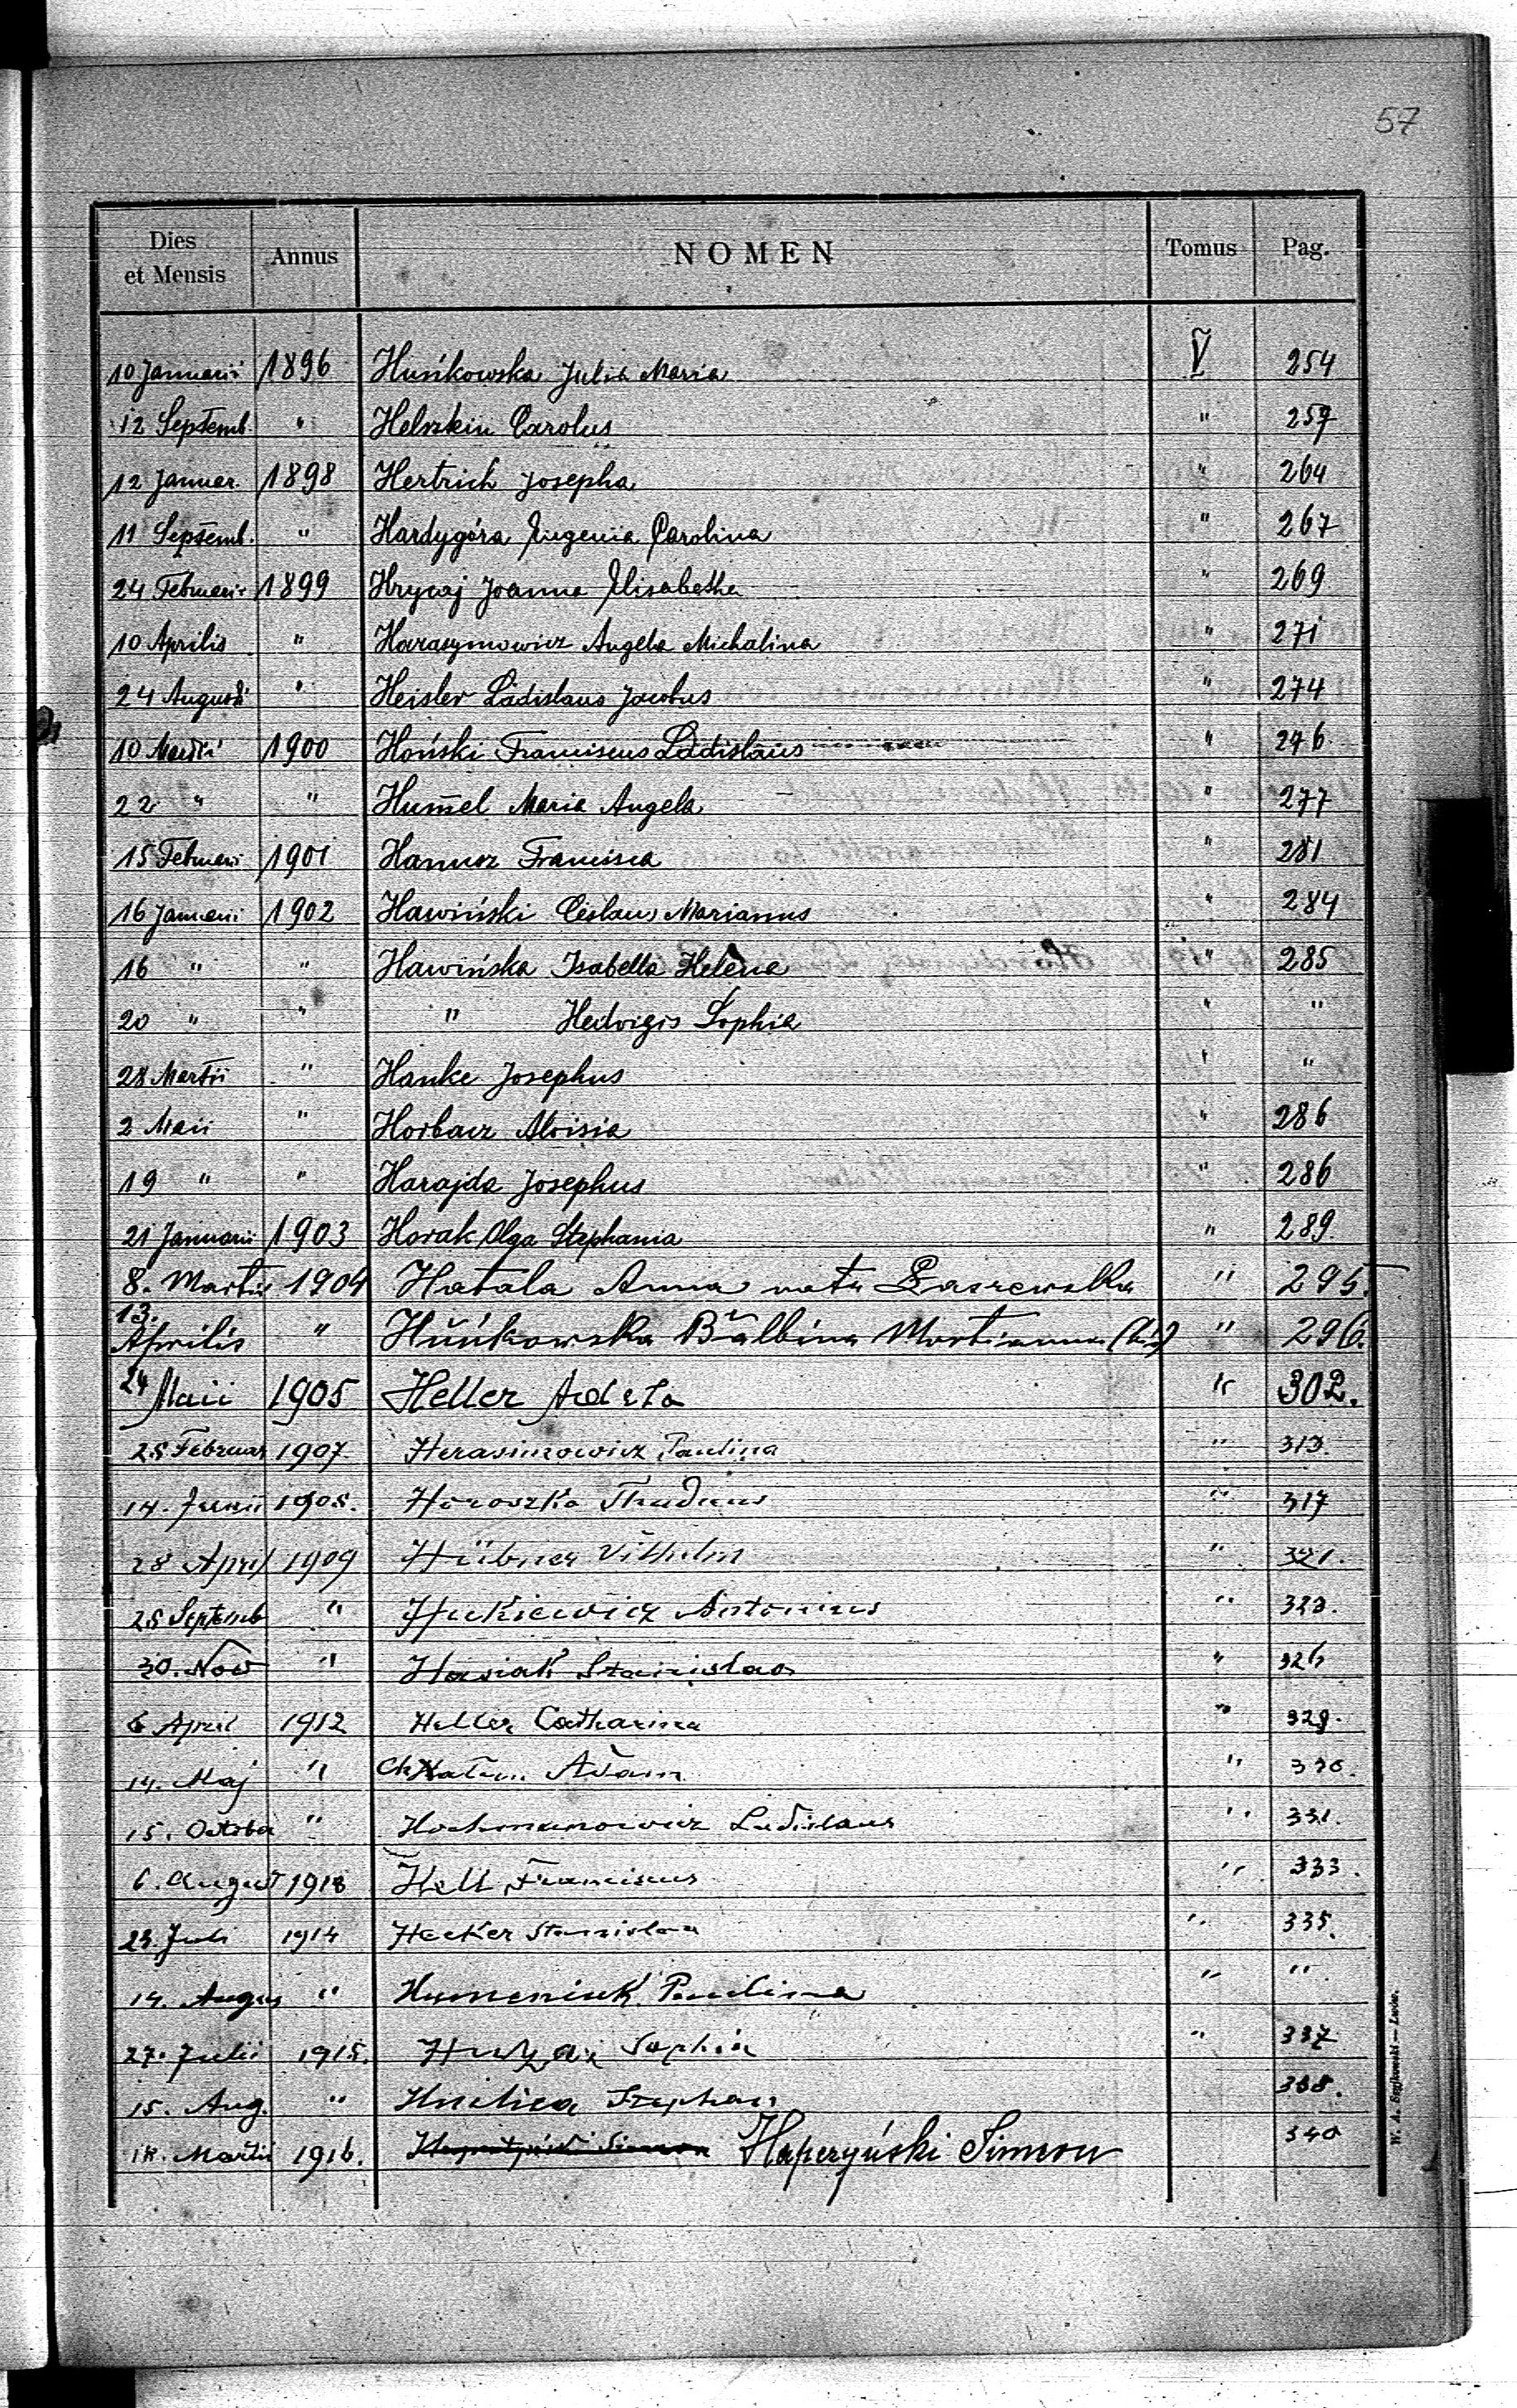 57
Dies et Mensis Annus NOMEN Tomus Pag.
10 Januarii 1896 Huńkowska Julia Maria V 254
12 Septemb. " Helszkin Carolus " 257
12 Januar. 1898 Hertrich Josepha " 264
11 Septemb. " Hardygóra Eugenia Carolina " 267
24 Februarii 1899 Hrycaj Joanna Elisabetha " 269
10 Aprilis " Harasymowicz Angela Michalina " 271
24 Augusti " Heisler Ladislaus Jacobus " 274
10 Martii 1900 Hoński Franciscus Ladislaus " 276
22 " " Hum̄el Maria Angela " 277
15 Februarii 1901 Hanusz Francisca " 281
16 Januarii 1902 Hawiński Ceslaus Marianus " 284
16 " " Hawińska Isabella Helena " 285
20 " " " Hedvigis Sophia " "
28 Martii " Hanke Josephus " "
2 Maii " Horbacz Aloisia " 286
19 " " Harajda Josephus " 286
21 Januarii 1903 Horak Olga Stephania " 289.
8. Martii 1904 Hatala Anna nata Łaszewska " 295.
13. Aprilis " Huńkowska Balbina Martianna " 296.
24 Maii 1905 Heller Adela " 302.
25 Februar 1907. Herasimowicz Paulina " 313.
14. Junii 1908. Horoszko Thadeus " 317
28 April 1909 Hübner Vilhelm " 321.
28 Septemb " Hukiewicz Antonius " 323.
30. Nov " Hasiak Stanislaa " 326
6 April 1912 Heller Catharina " 329.
14. Maj " Adam " 330.
15. Octobr " Hochmanowicz Ladislaus " 331.
6. August 1918 Hell Franciscus " 333.
23. Juli 1914 Hecker Stanislaa " 335.
14. Augus " Humeniuk Paulina " "
27. Julii 1915. Huzar Sophia " 337
15. Aug. " Hnilica Stephan 338.
18. Martii 1916. Haperzyński Simeon 340
W. A. Szyjkowski — Lwów.